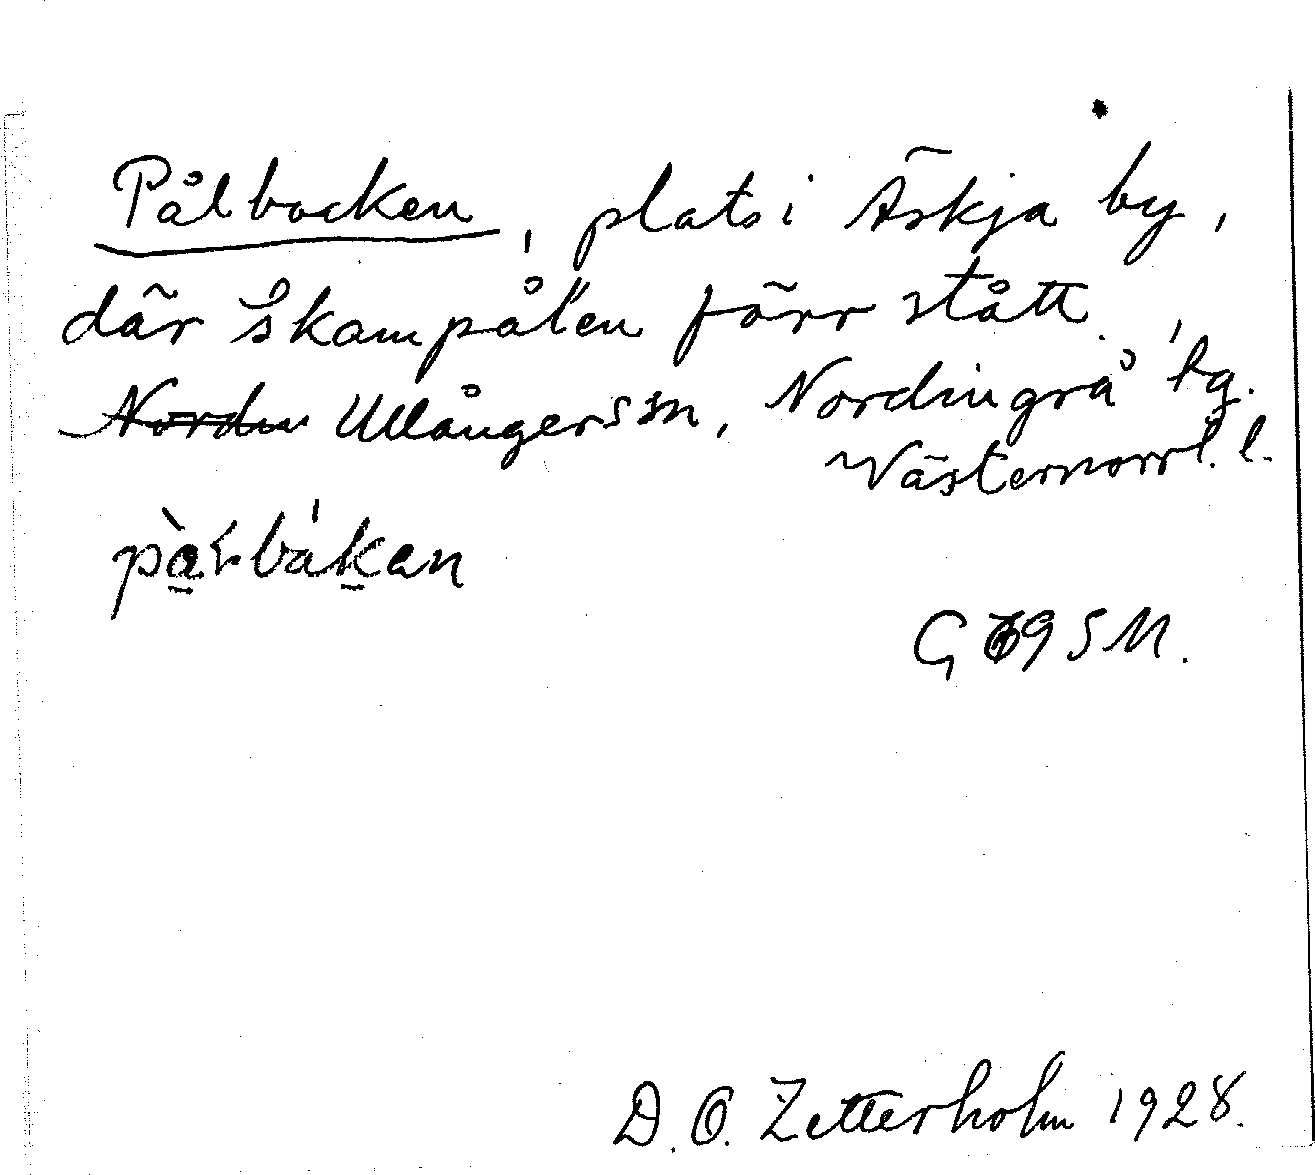 Pålbocken, plats i Äskja by,
där skampålen förr stått.
Ullånger sn, Nordingrå tg.
Västernorrl. l.
D. O. Zetterholm 1928.